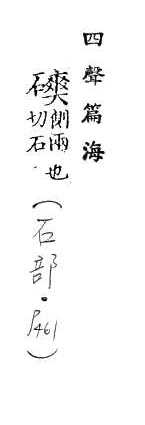 四聲篇海
側兩切石也
（石部．P461）